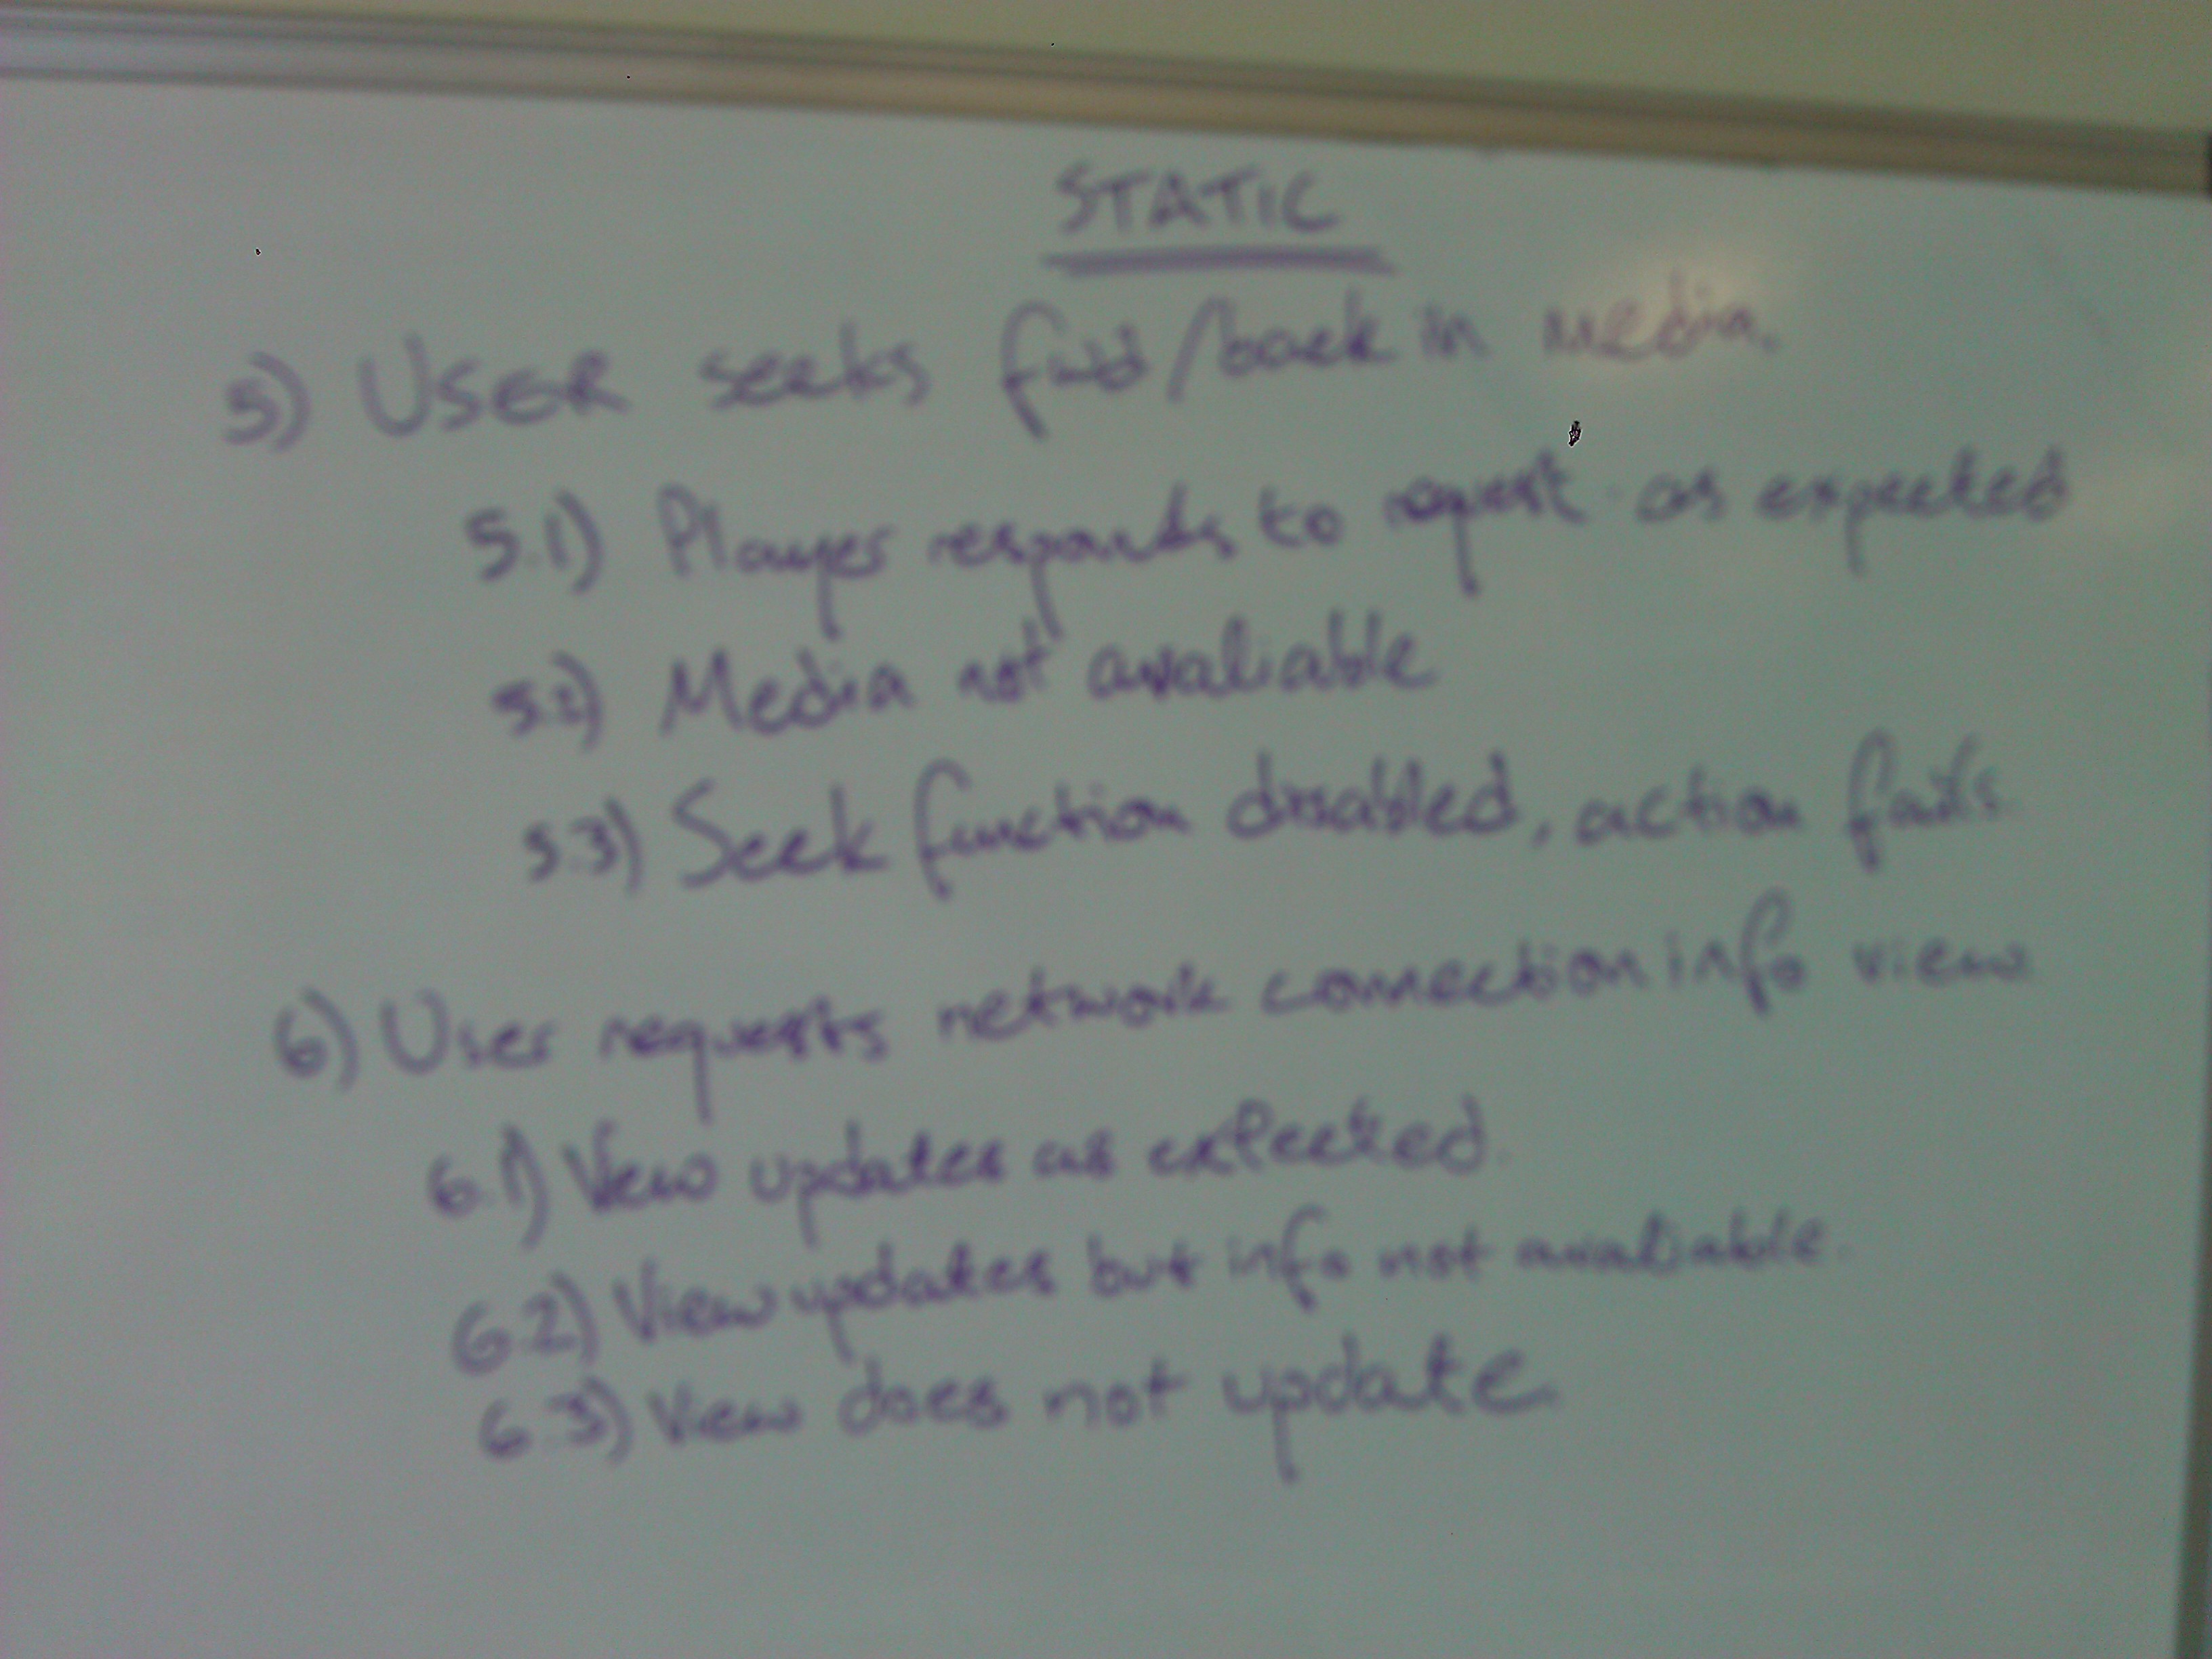 STATIC
5) USER seeks fwd/back in Media.
5.1) Player responds to request as expected
5.2) Media not avaliable
5.3) Seek function disabled, action fails
6) User requests network connection info view
6.1) View updates as expected.
6.2) View updates but info not avaliable.
6.3) View does not update